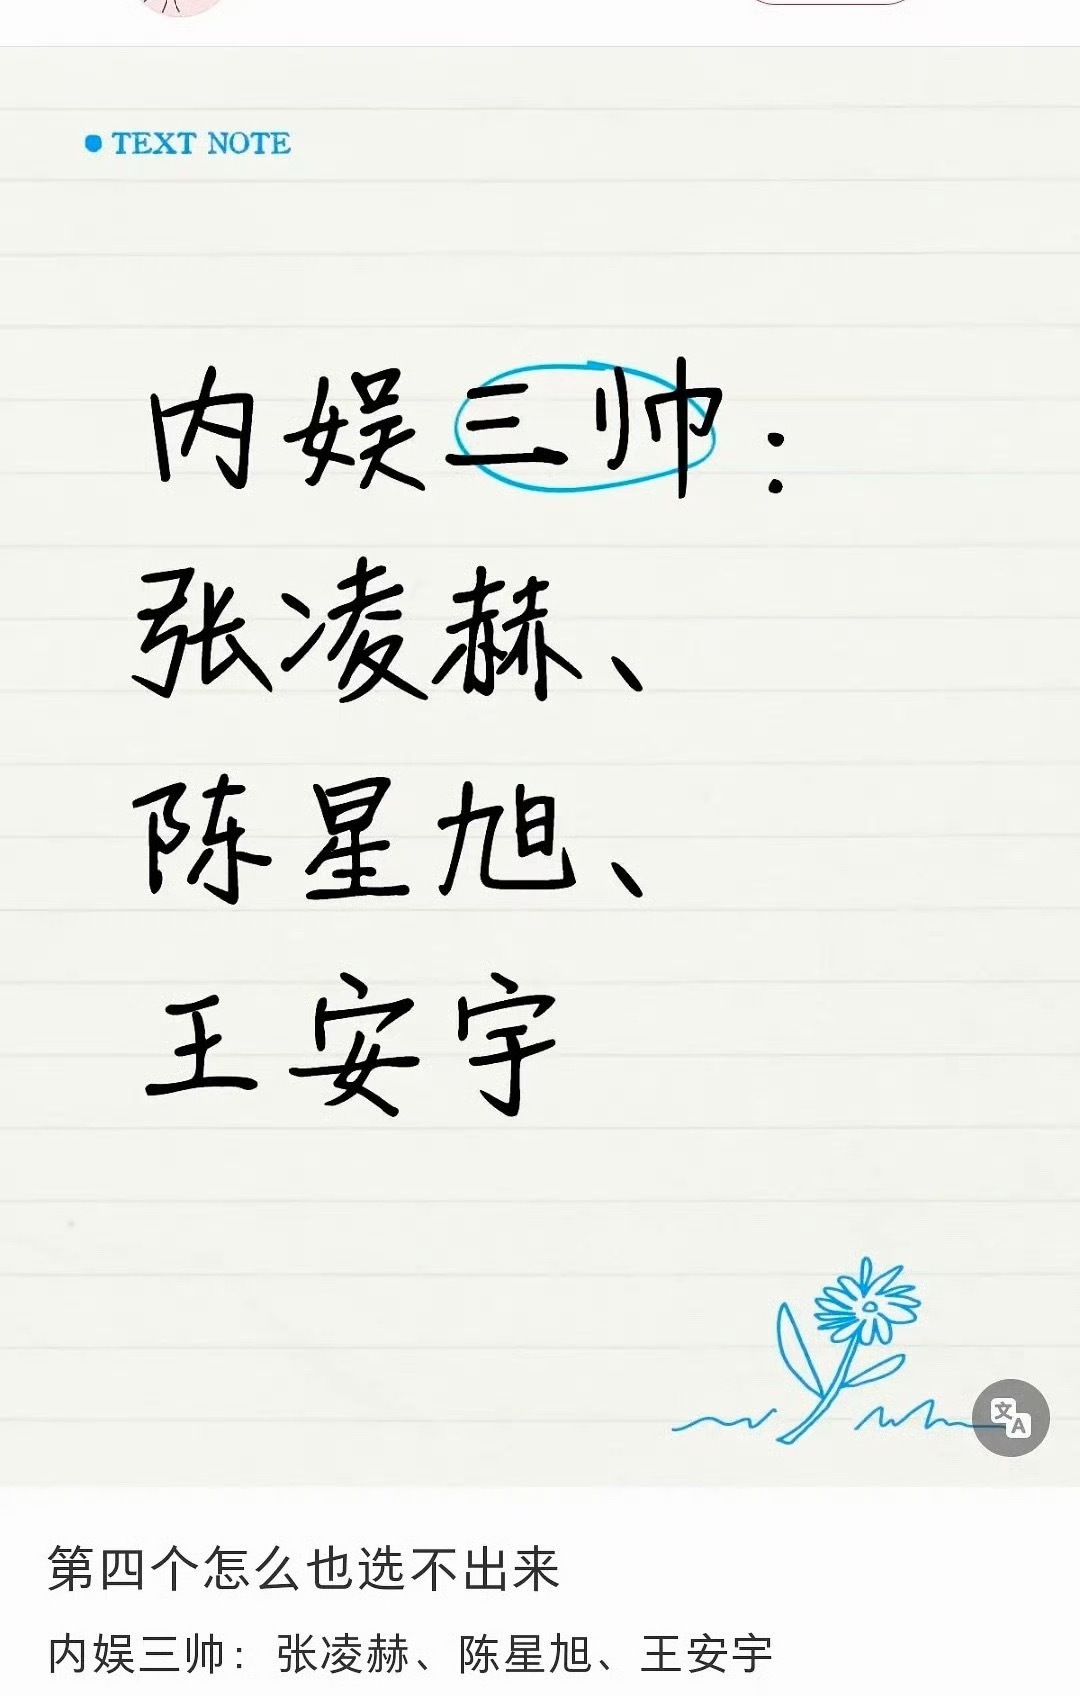 TEXT NOTE
内娱三帅：
张凌赫、
陈星旭、
王安宇
文A
第四个怎么也选不出来
内娱三帅：张凌赫、陈星旭、王安宇